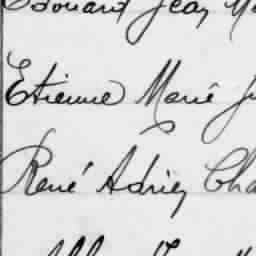 Edouard Jean Ma
Etienne Marie Ju
René Adrien Cha